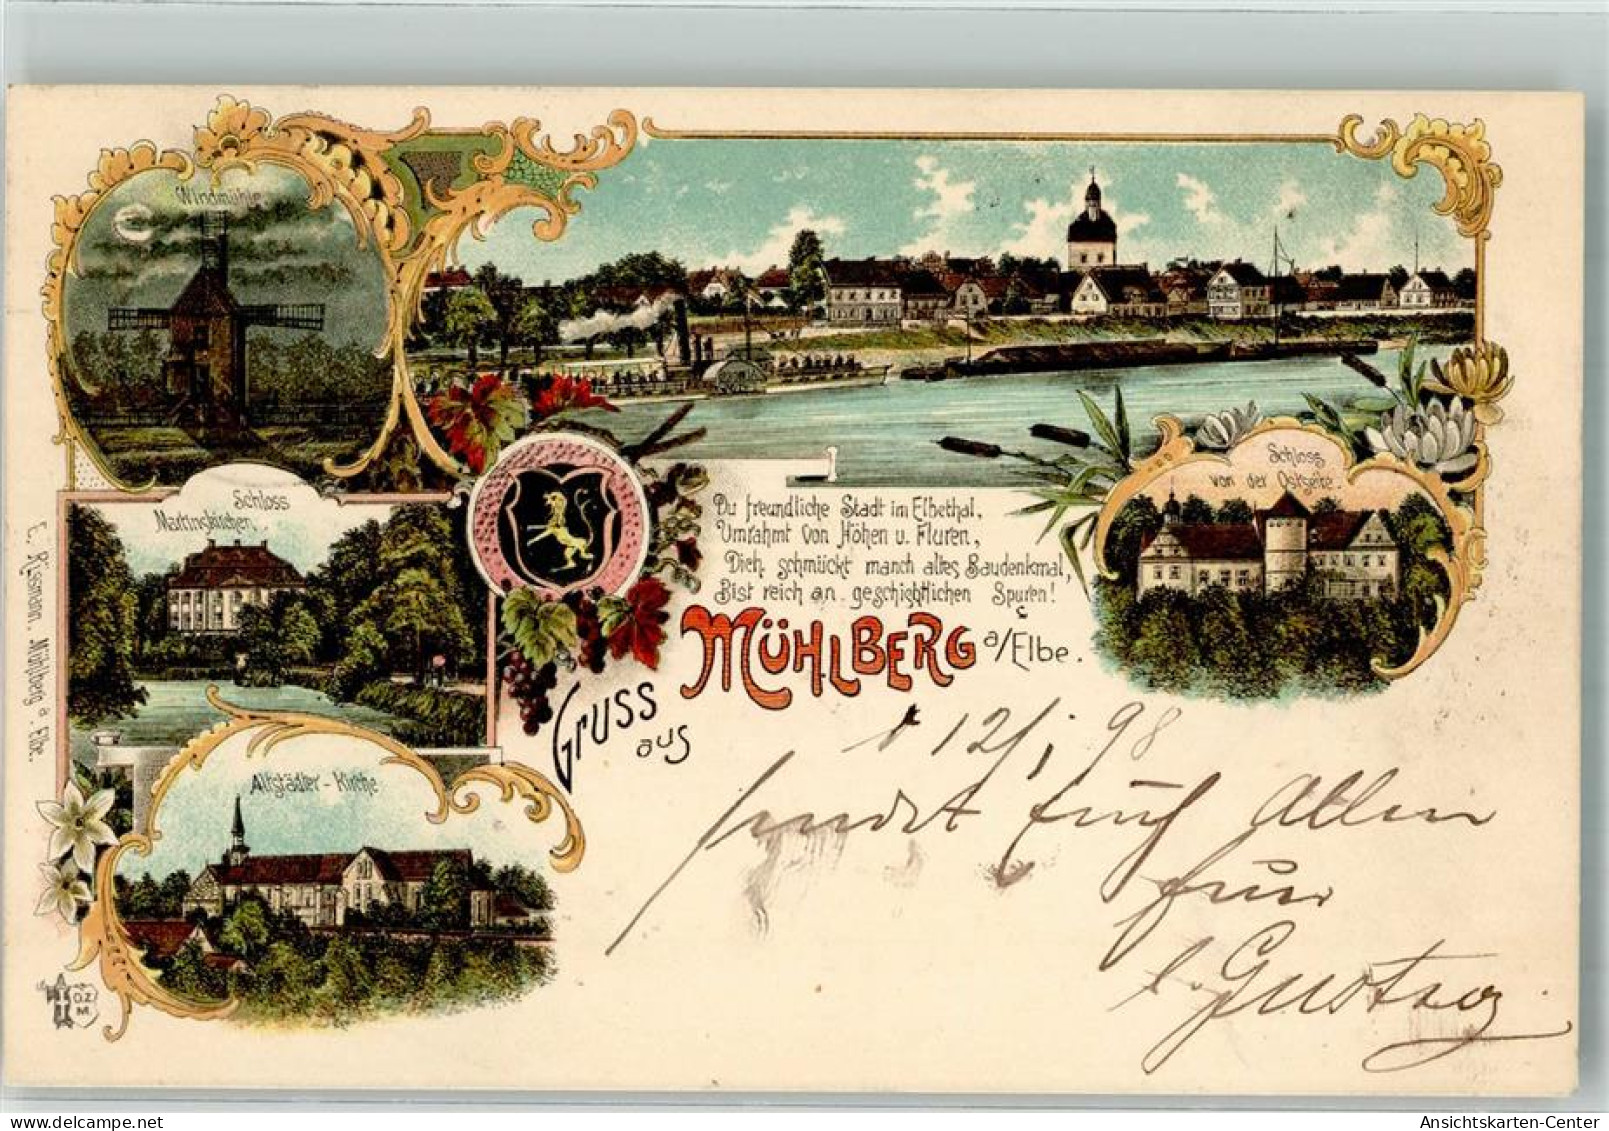 Windmühle
Schloss
Martinskirchen.
Altstädter-Kirche
Schloss
von der Ostseite.
Du freundliche Stadt im Elbethal,
Umrahmt von Höhen u. Fluren,
Dich schmückt manch altes Baudenkmal,
Bist reich an geschichtlichen Spuren!
Gruss
aus
MÜHLBERG a/Elbe.
12/1 98
sendet Euch Allen
Gustav
E. Rissmann. Mühlberg a. Elbe.
O.Z.
M.
Ansichtskarten-Center